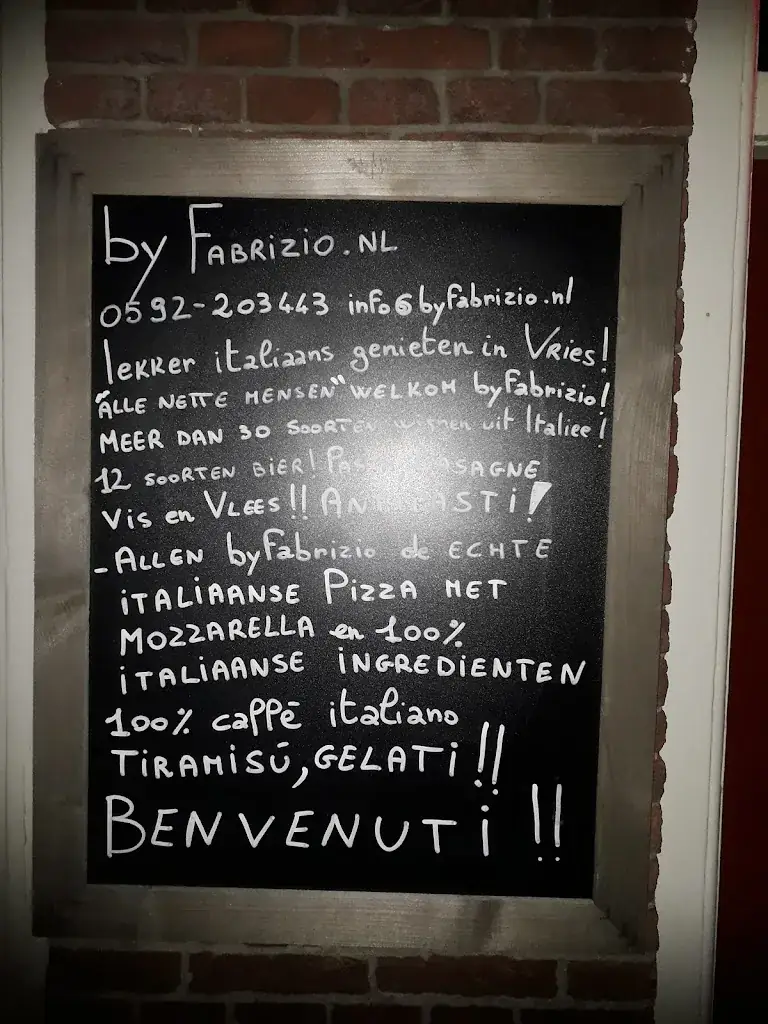 by FABRIZIO.NL
0592-203443 info@byfabrizio.nl
lekker italiaans genieten in VRies!
"ALLE NETTE MENSEN" WELKOM byFabrizio!
MEER DAN 30 SOORTEN wijnen uit Italiee!
12 SOORTEN BIER! LASAGNE
Vis en VLEES!! ANTIPASTI!
-ALLEN byFabrizio de ECHTE
iTALIAANSE PIZZA MET
MOZZARELLA en 100%
iTALIAANSE iNGREDIENTEN
100% caffē italiano
TiRAMiSŪ, GELATi!!
BENVENUTi!!